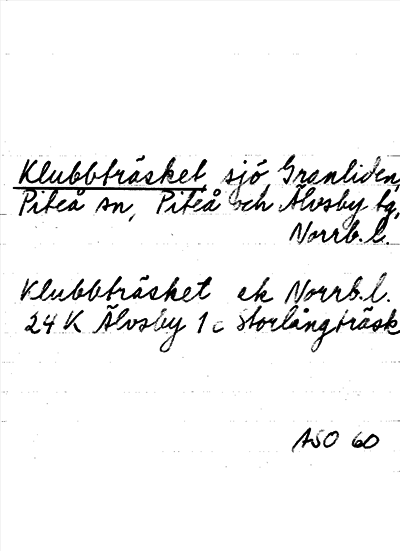 Klubbträsket, sjö Granliden,
Piteå sn, Piteå och Älvsby tg,
Norrb.l.
Klubbträsket ek Norrb.l.
24 K Älvsby 1 c Storlångträsk
ASO 60